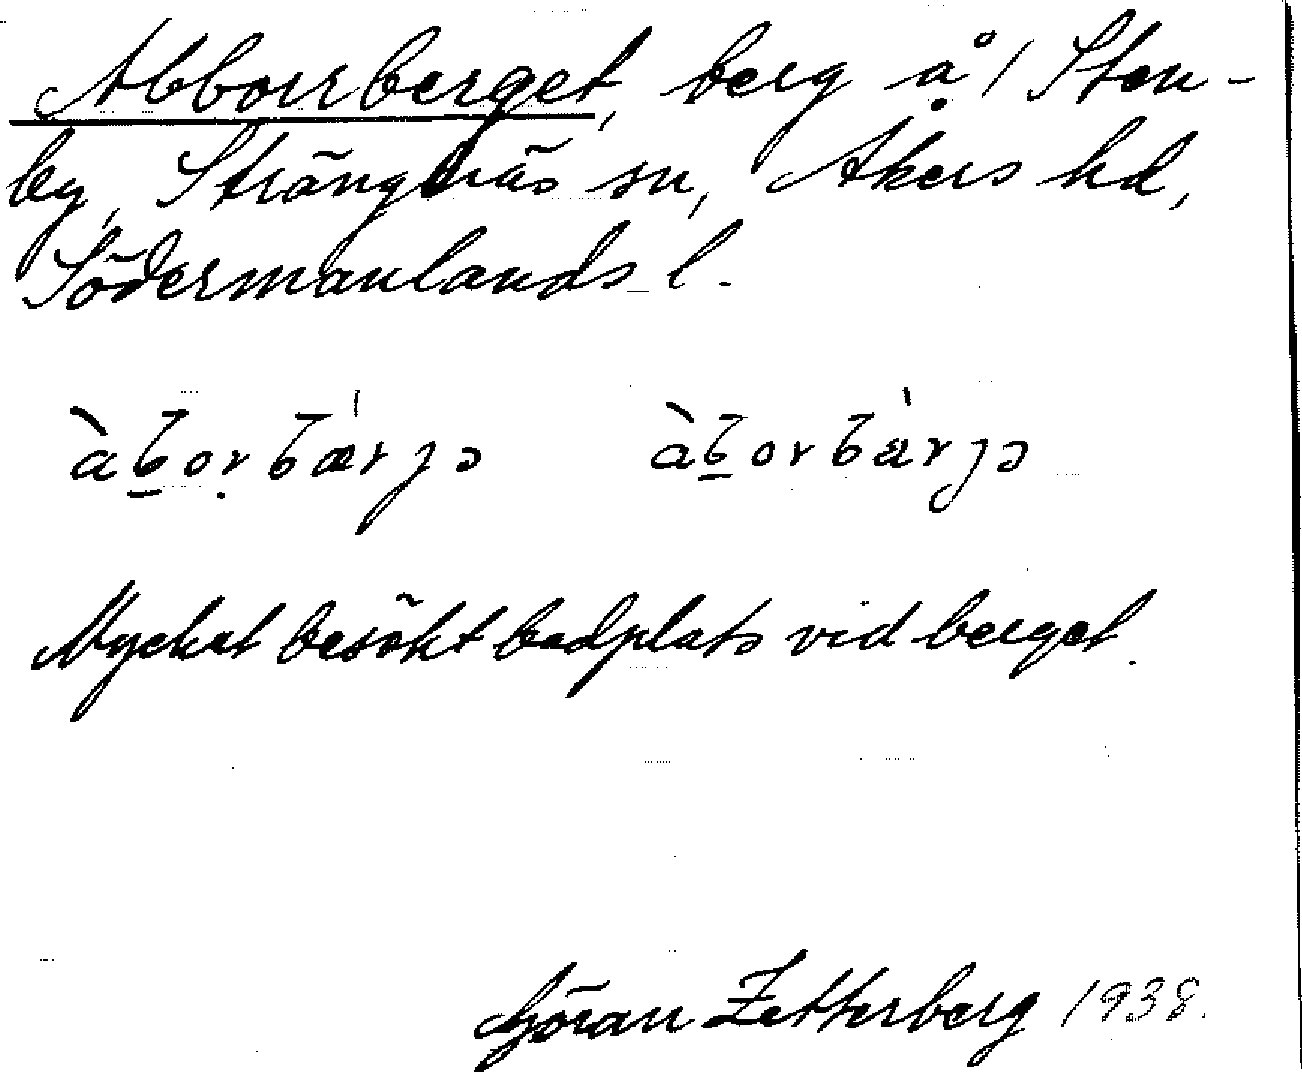 Abborrberget, berg å 1 Sten-
by, Strängnäs sn, Åkers hd,
Södermanlands l.
àb̲orḅærjə àb̲orbærjə
Mycket besökt badplats vid berget.
Göran Zetterberg 1938.